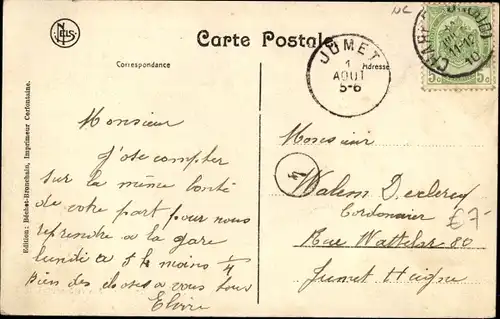 NC
NELS
Carte Postale
Correspondance
Adresse
JUMET
1
AOUT
5-6
11-12
10
5c 5c
Edition: Béchet-Bronchain, Imprimeur Cerfontaine.
Monsieur
J'ose compter
sur la même bonté
de votre part pour nous
reprendre a la gare
lundi a 5 h moins 1/4
Bien des choses a vous tous
Elvire
Monsieur
4
Walem Declercq
Cordonnier
€7-
Rue Wattelar 80
Jumet